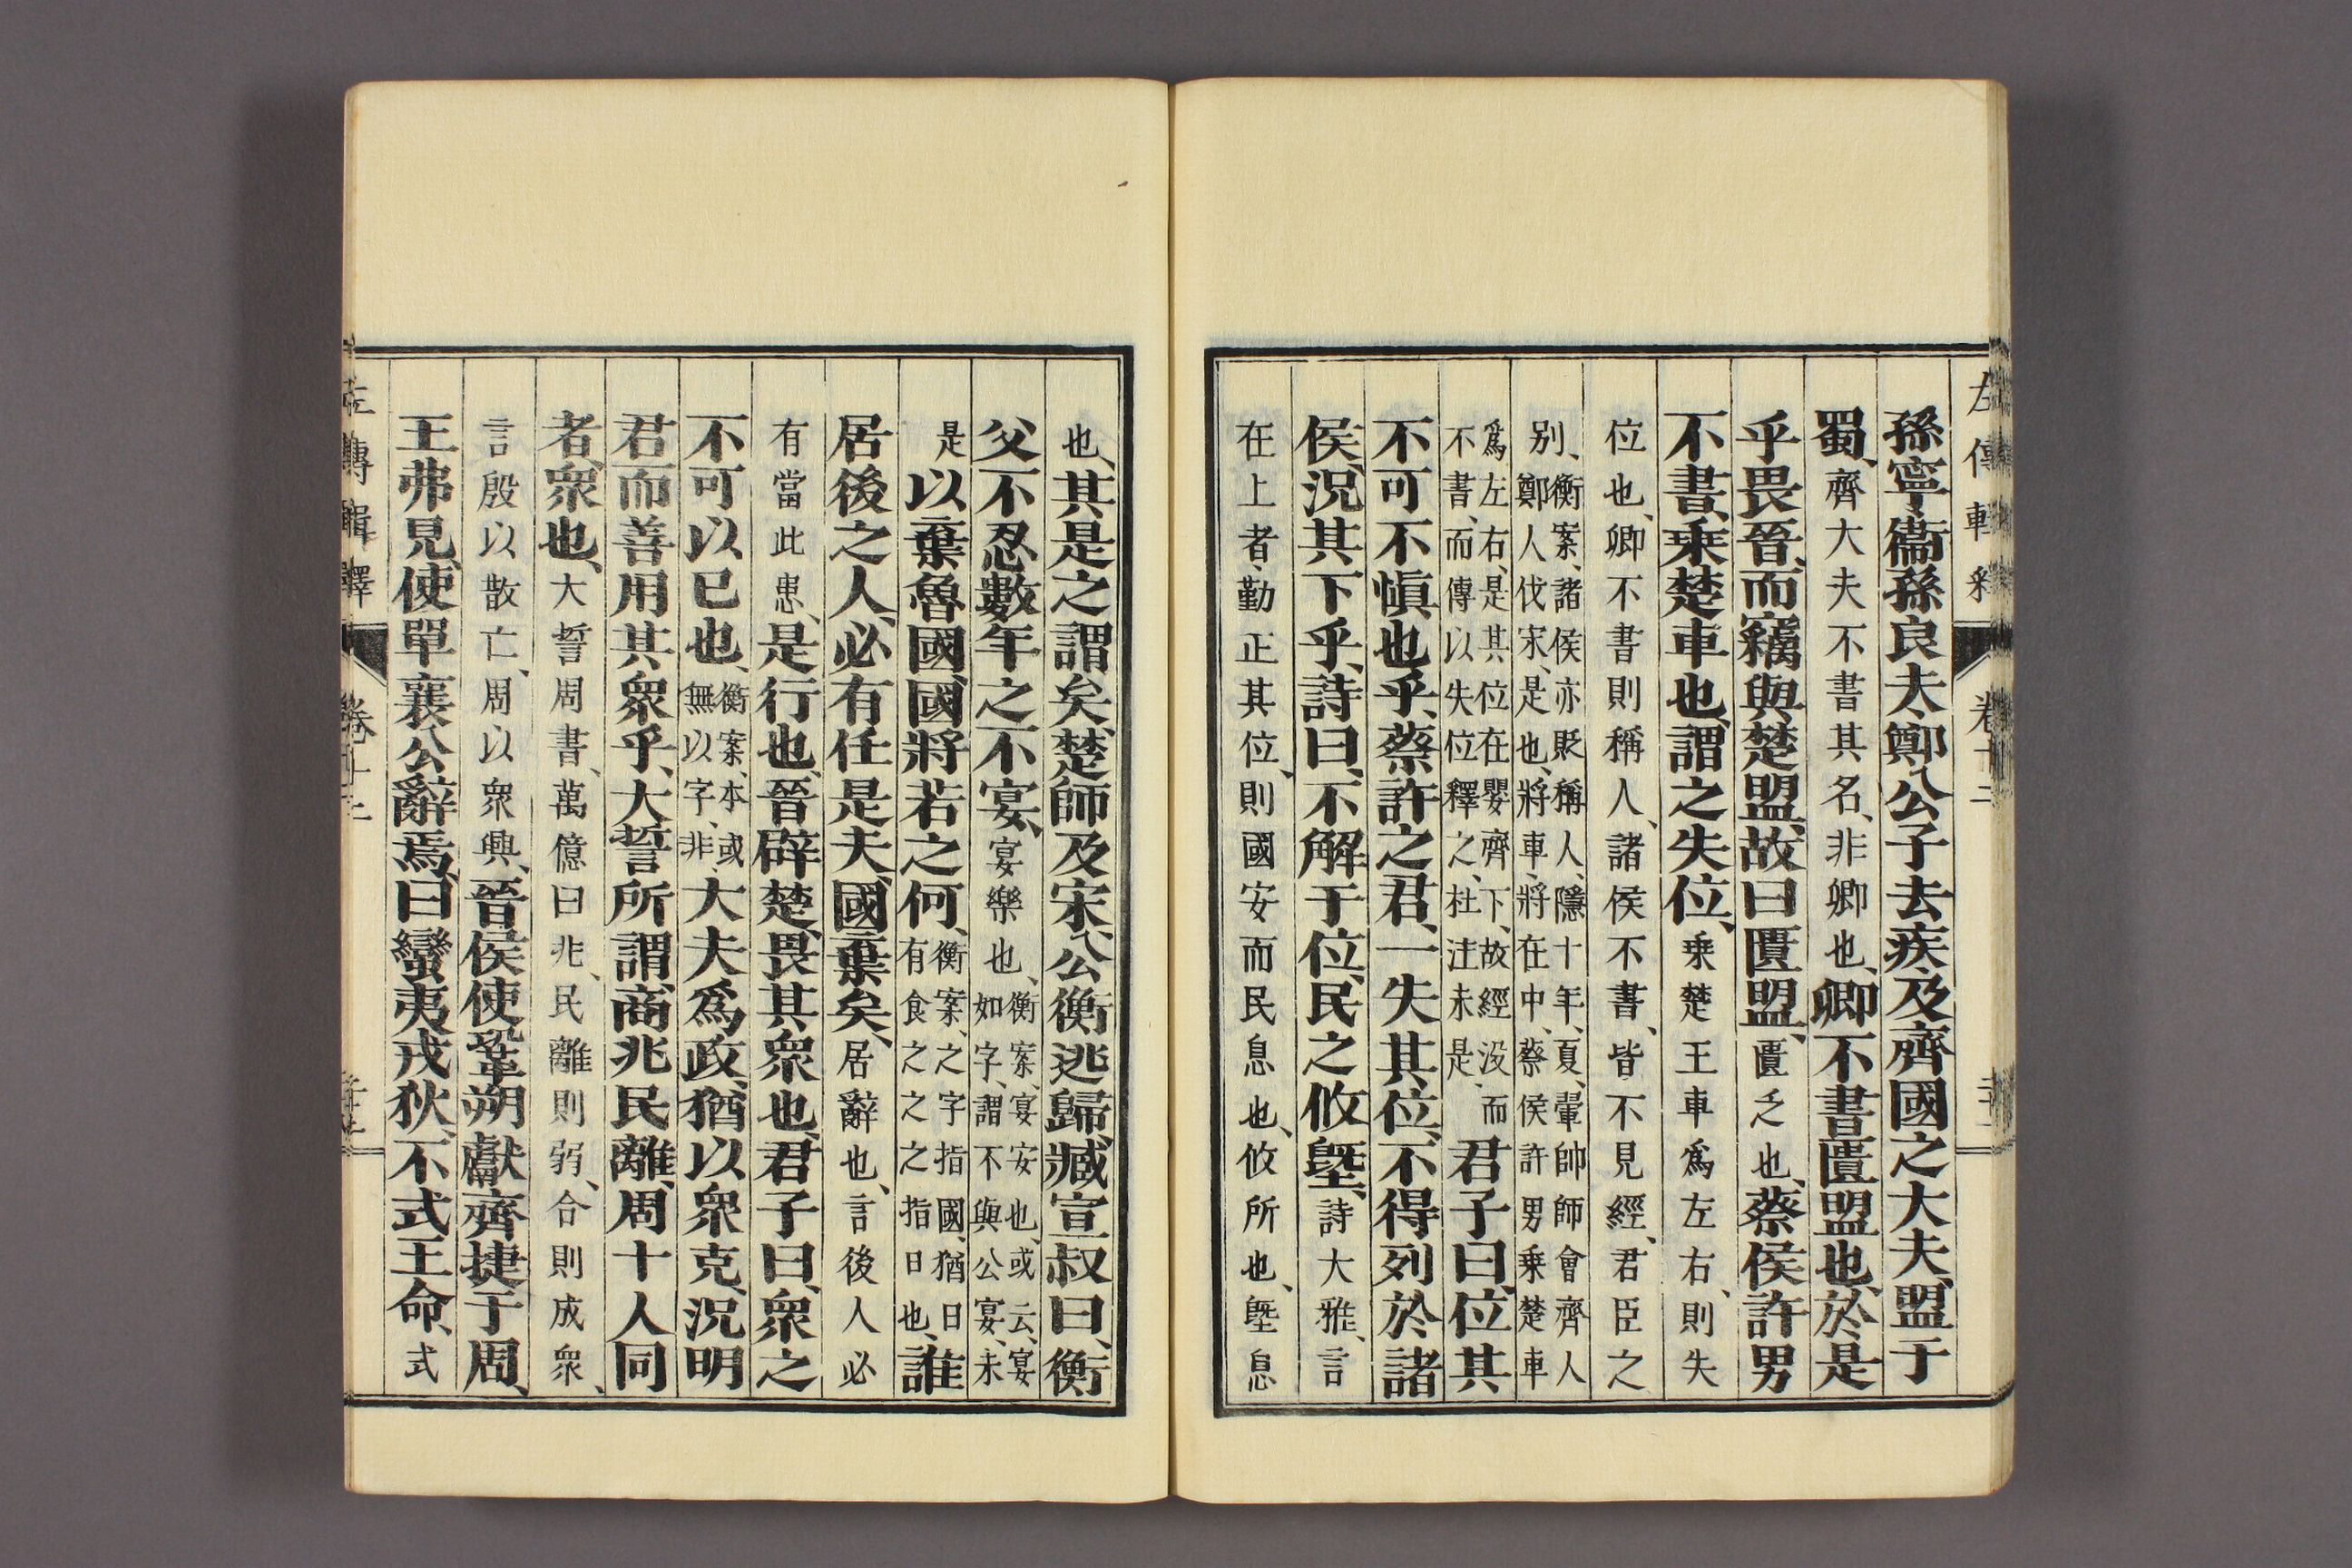 孫寧、衞孫良夫、鄭公子去疾、及齊國之大夫、盟于
蜀、齊大夫不書其名、非卿也、卿不書匱盟也、於是
乎畏晉、而竊與楚盟、故曰匱盟、匱乏也、蔡侯許男
不書、乘楚車也、謂之失位、乘楚王車爲左右、則失
位也、卿不書則稱人、諸侯不書、皆不見經、君臣之
別、衡案、諸侯亦貶稱人、隱十年、夏、翬帥師會齊人
鄭人伐宋、是也、將車、將在中、蔡侯許男乘楚車
爲左右、是其位在嬰齊下、故經没、而
不書、而傳以失位釋之、杜注未是、君子曰、位其
不可不愼也乎、蔡許之君、一失其位、不得列於諸
侯、況其下乎、詩曰、不解于位、民之攸塈、詩大雅、言
在上者、勤正其位、則國安而民息也、攸所也、塈息
也、其是之謂矣、楚師及宋、公衡逃歸、臧宣叔曰、衡
父不忍數年之不宴、宴樂也、衡案、宴安也、或云、宴
如字、謂不與公宴、未
是以棄魯國、國將若之何、衡案、之字指國、猶日
有食之之之指日也、誰
居後之人、必有任是夫、國棄矣、居辭也、言後人必
有當此患、是行也、晉辟楚、畏其衆也、君子曰、衆之
不可以已也、衡案、本或
無以字、非、大夫爲政、猶以衆克、況明
君而善用其衆乎、大誓所謂、商兆民離、周十人同
者、衆也、大誓周書、萬億曰兆、民離則弱、合則成衆、
言殷以散亡、周以衆興、晉侯使鞏朔獻齊捷于周、
王弗見、使單襄公辭焉、曰、蠻夷戎狄、不式王命、式